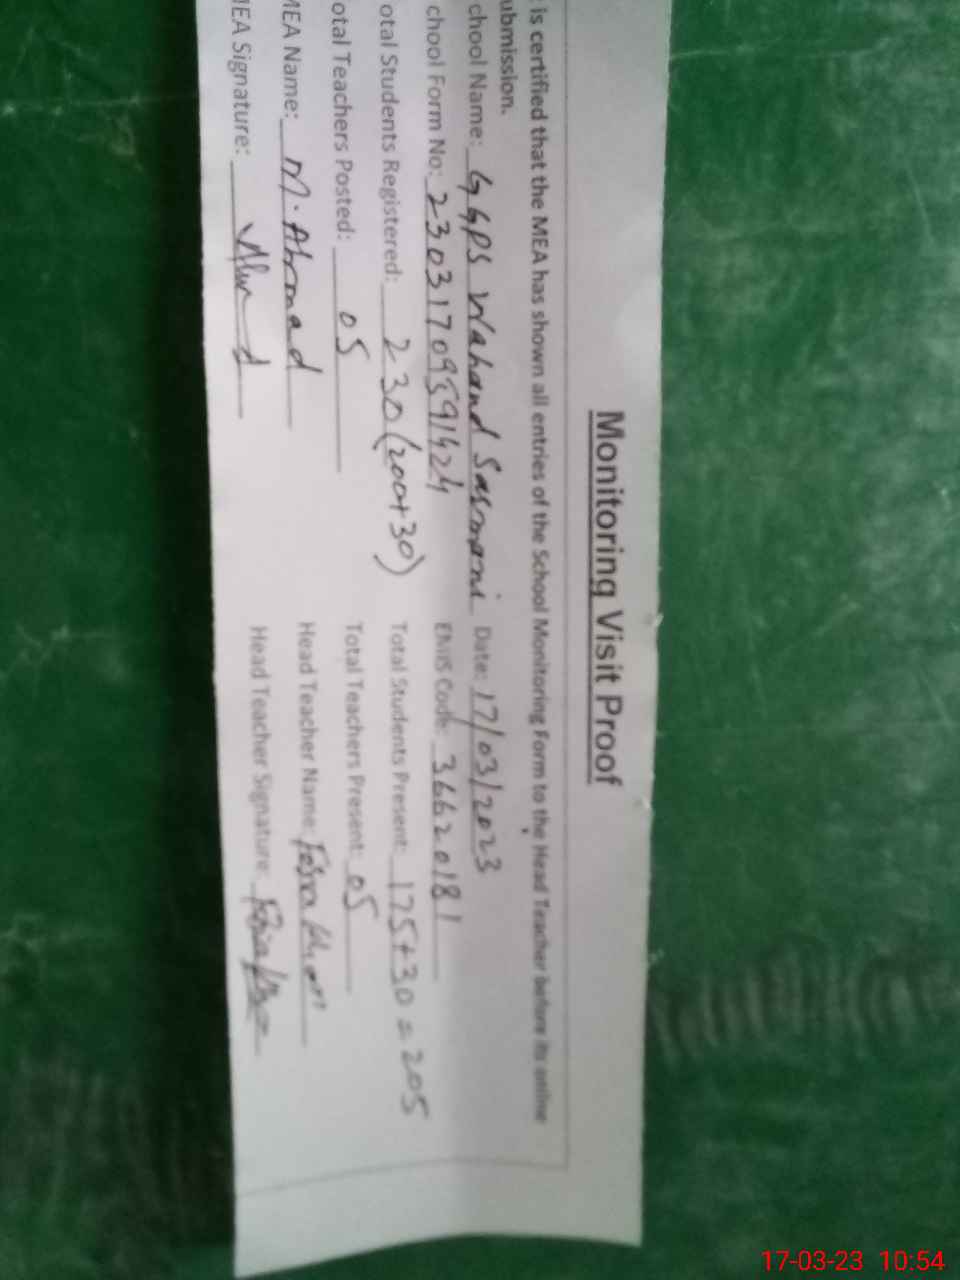 Monitoring Visit Proof
is certified that the MEA has shown all entries of the School Monitoring Form to the Head Teacher before its online
ubmission.
chool Name: GGPS Wahand Sasmani Date: 17/03/2023
chool Form No: 230317093591424 EMIS Code: 36620181
otal Students Registered: 230 (200+30) Total Students Present: 175+30 = 205
otal Teachers Posted: 05 Total Teachers Present: 05
MEA Name: M. Ahmad Head Teacher Name:
MEA Signature: Head Teacher Signature:
17-03-23 10:54